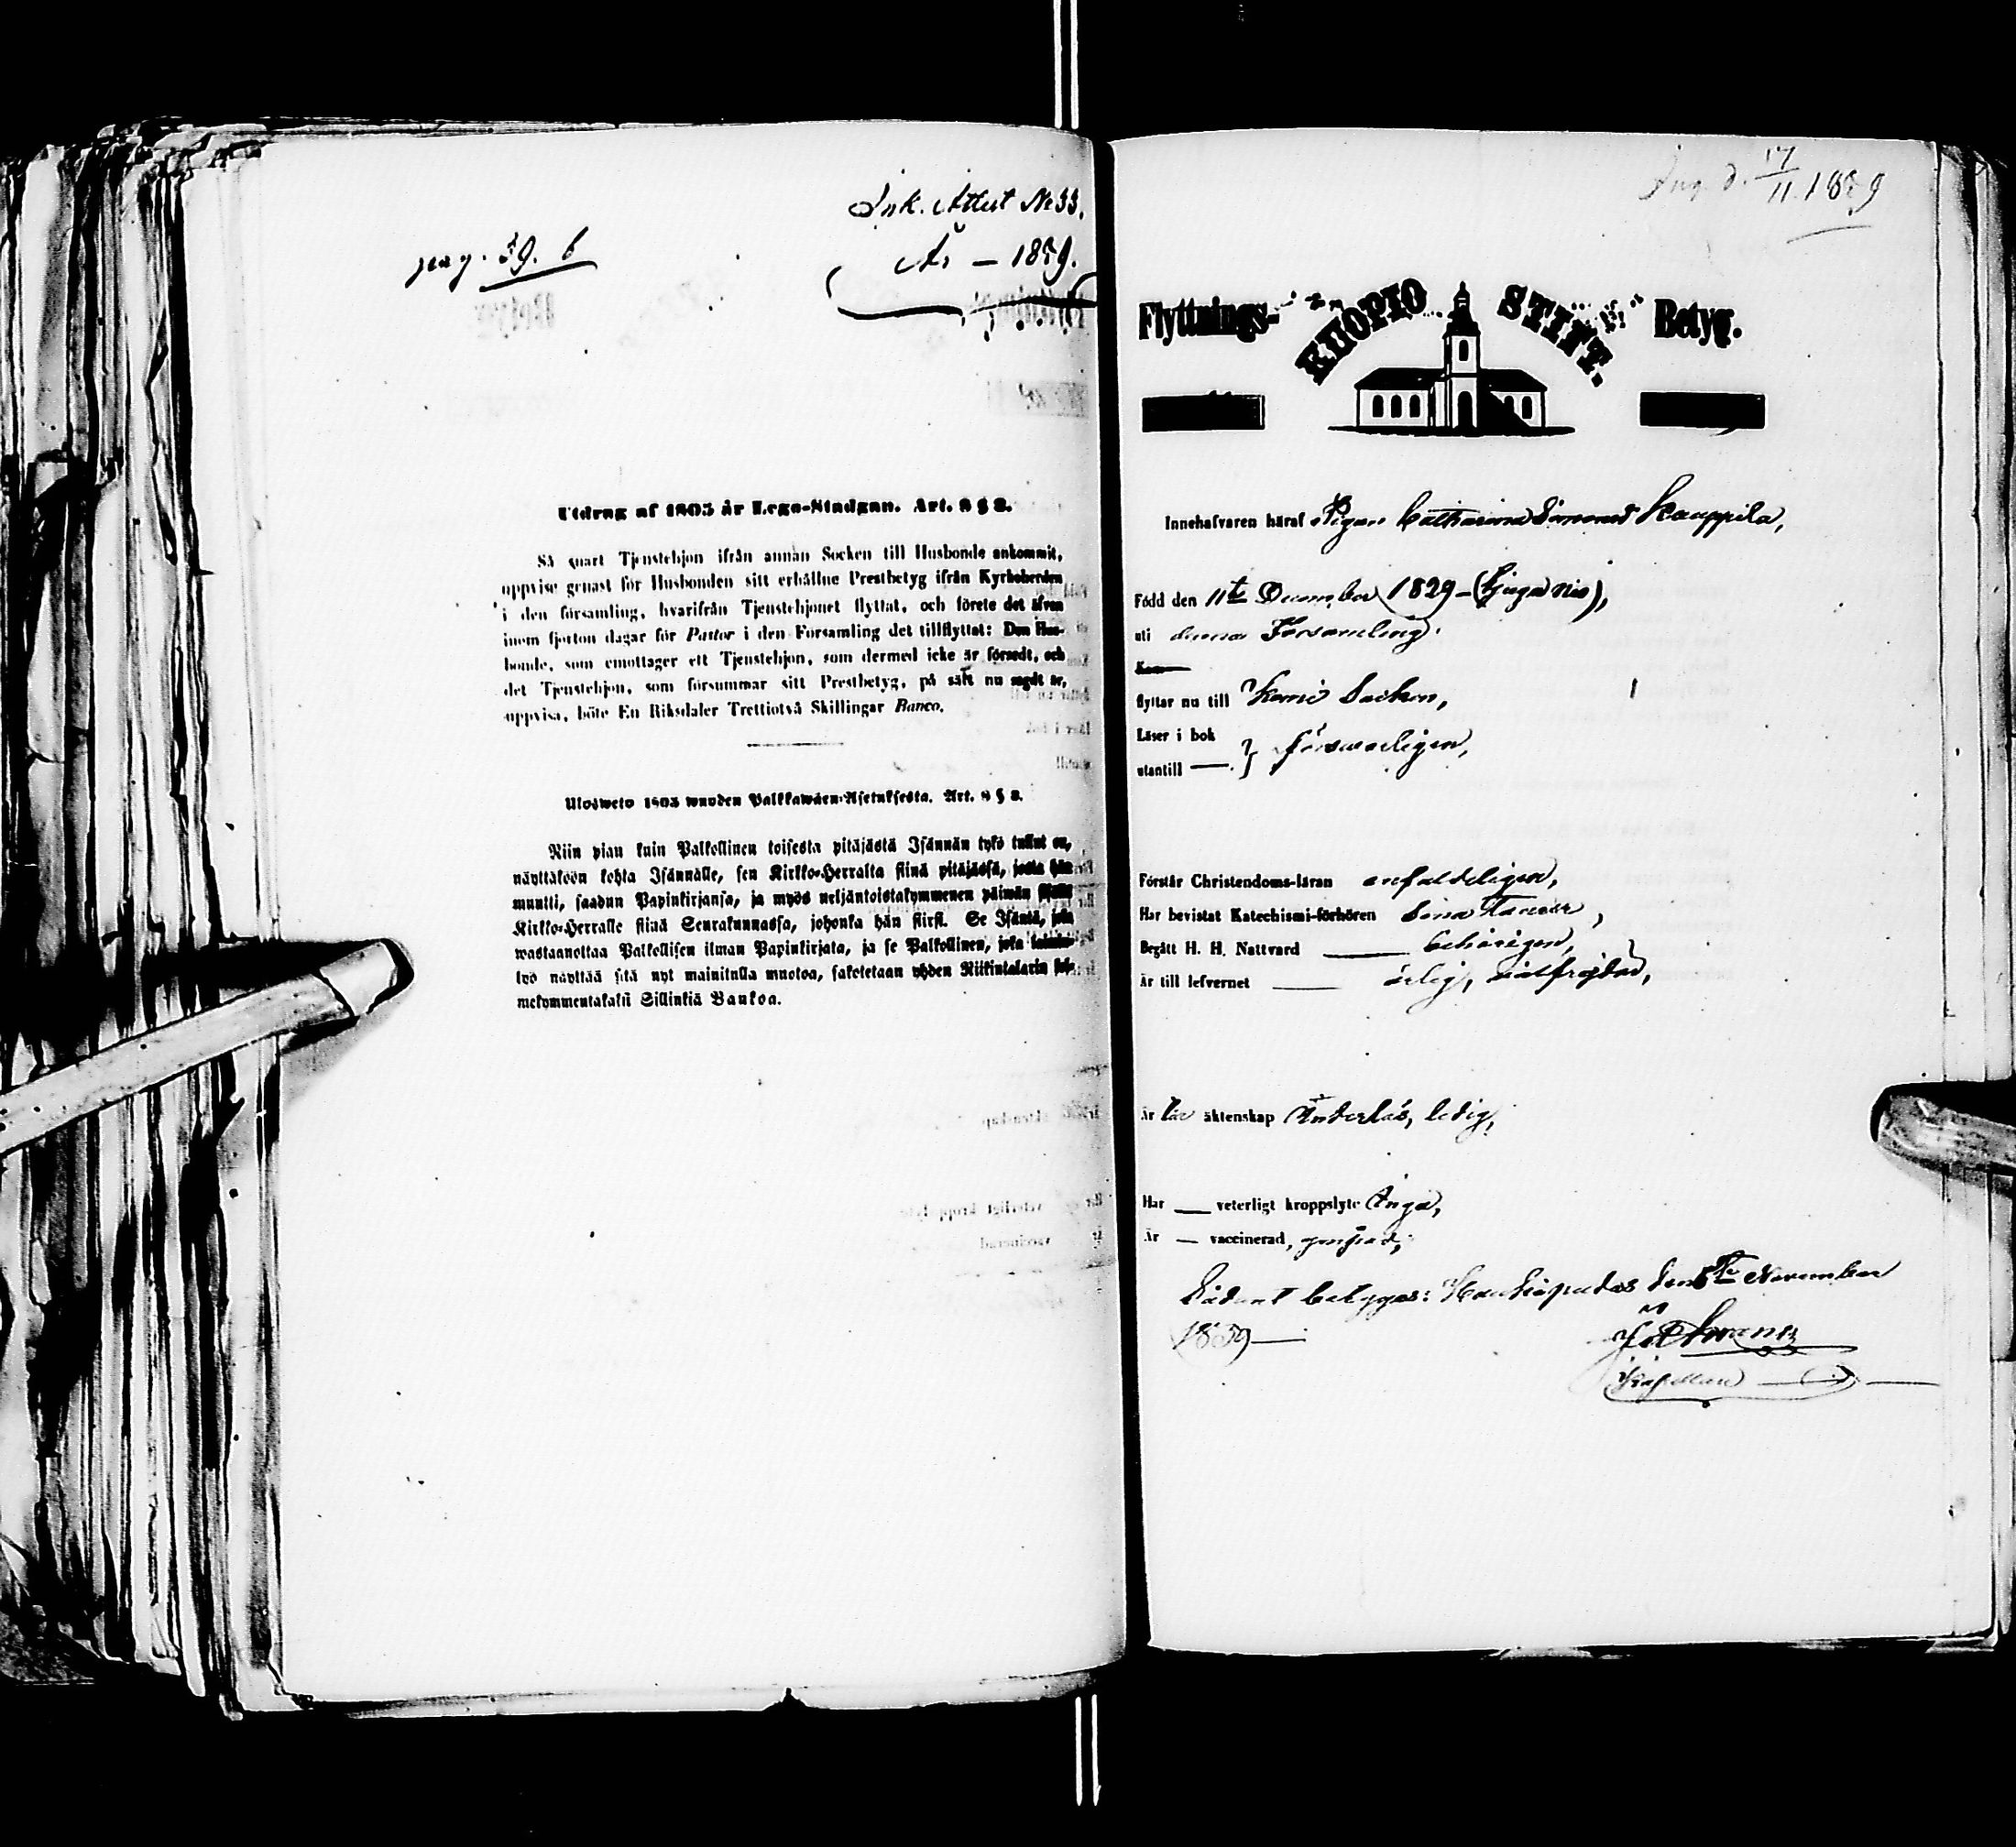 Ink. Attest No 33.
År – 1859.
pag. 59. 6
Utdrag af 1805 år Lego-Stadgan. Art. 8 § 2.
Så snart Tjenstehjon ifrån annan Socken till Husbonde ankommit,
uppvise genast för Husbonden sitt erhållne Prestbetyg ifrån Kyrkoherden
i den församling, hvarifrån Tjenstehjonet flyttat, och förete det äfven
inom fjorton dagar för Pastor i den Församling det tillflyttat: Den Hus-
bonde, som emottager ett Tjenstehjon, som dermed icke är försedt, och
det Tjenstehjon, som försummar sitt Prestbetyg, på sätt nu sagdt är,
uppvisa, böte En Riksdaler Trettiotvå Skillingar Banco.
Ulosweto 1805 wuoden Palkkawäen-Asetuksesta. Art. 8 § 2.
Niin pian kuin Palkollinen toisesta pitäjästä Isännän tykö tullut on,
näyttäköön kohta Isännälle, sen Kirkko-Herralta siinä pitäjässä, josta hän
muutti, saadun Papinkirjansa, ja myös neljäntoistakymmenen päiwän sisällä
Kirkko-Herralle siinä Seurakunnassa, johonka hän siirsi. Se Isäntä, joka
wastaanottaa Palkollisen ilman Papinkirjata, ja se Palkollinen, joka laimin-
lyö näyttää sitä nyt mainitulla muotoa, sakotetaan yhden Riikintalarin kol-
mekymmentäkaksi Sillinkiä Bankoa.
Ing. d. 17/11 1859
Flyttnings- KUOPIO STIFT. Betyg.
Innehafvaren häraf Pigan Catharina Simonsd Kauppila,
Född den 11te December 1829 –
uti denna Församling.
flyttar nu till Kemi Socken,
Läser i bok
utantill } försvarligen,
Förstår Christendoms-läran enfaldeligen,
Har bevistat Katechismi-förhören sina
Begått H. H. Nattvard behörigen,
Är till lefvernet ärlig, välfrejdad,
Är till äktenskap ledig,
Har — veterligt kroppslyte Inga,
Är — vaccinerad,
Sådant betygas: Haukipudas den November
1859 —
Kapellan